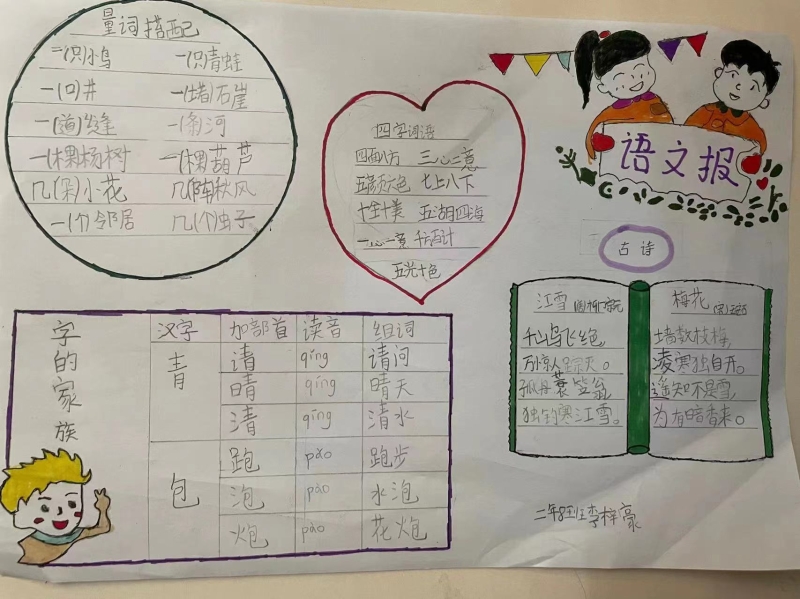 量词搭配
一(只)小鸟 一(只)青蛙
一(口)井 一(堵)石崖
一(道)缝 一(条)河
一(棵)杨树 一(棵)葫芦
几(朵)小花 几(阵)秋风
一(个)邻居 几(个)虫子
四字词语
四面八方 三心二意
五颜六色 七上八下
十全十美 五湖四海
一心一意 千方百计
五光十色
语文报
古诗
江雪
千山鸟飞绝
万径人踪灭。
孤舟蓑笠翁
独钓寒江雪。
梅花
墙数枝梅,
凌寒独自开。
遥知不是雪,
为有暗香来。
字的家族
汉字 加部首 读音 组词
青 请 qǐng 请问
晴 qíng 晴天
清 qīng 清水
包 跑 pǎo 跑步
泡 pào 水泡
炮 pào 花炮
二年 班李梓豪